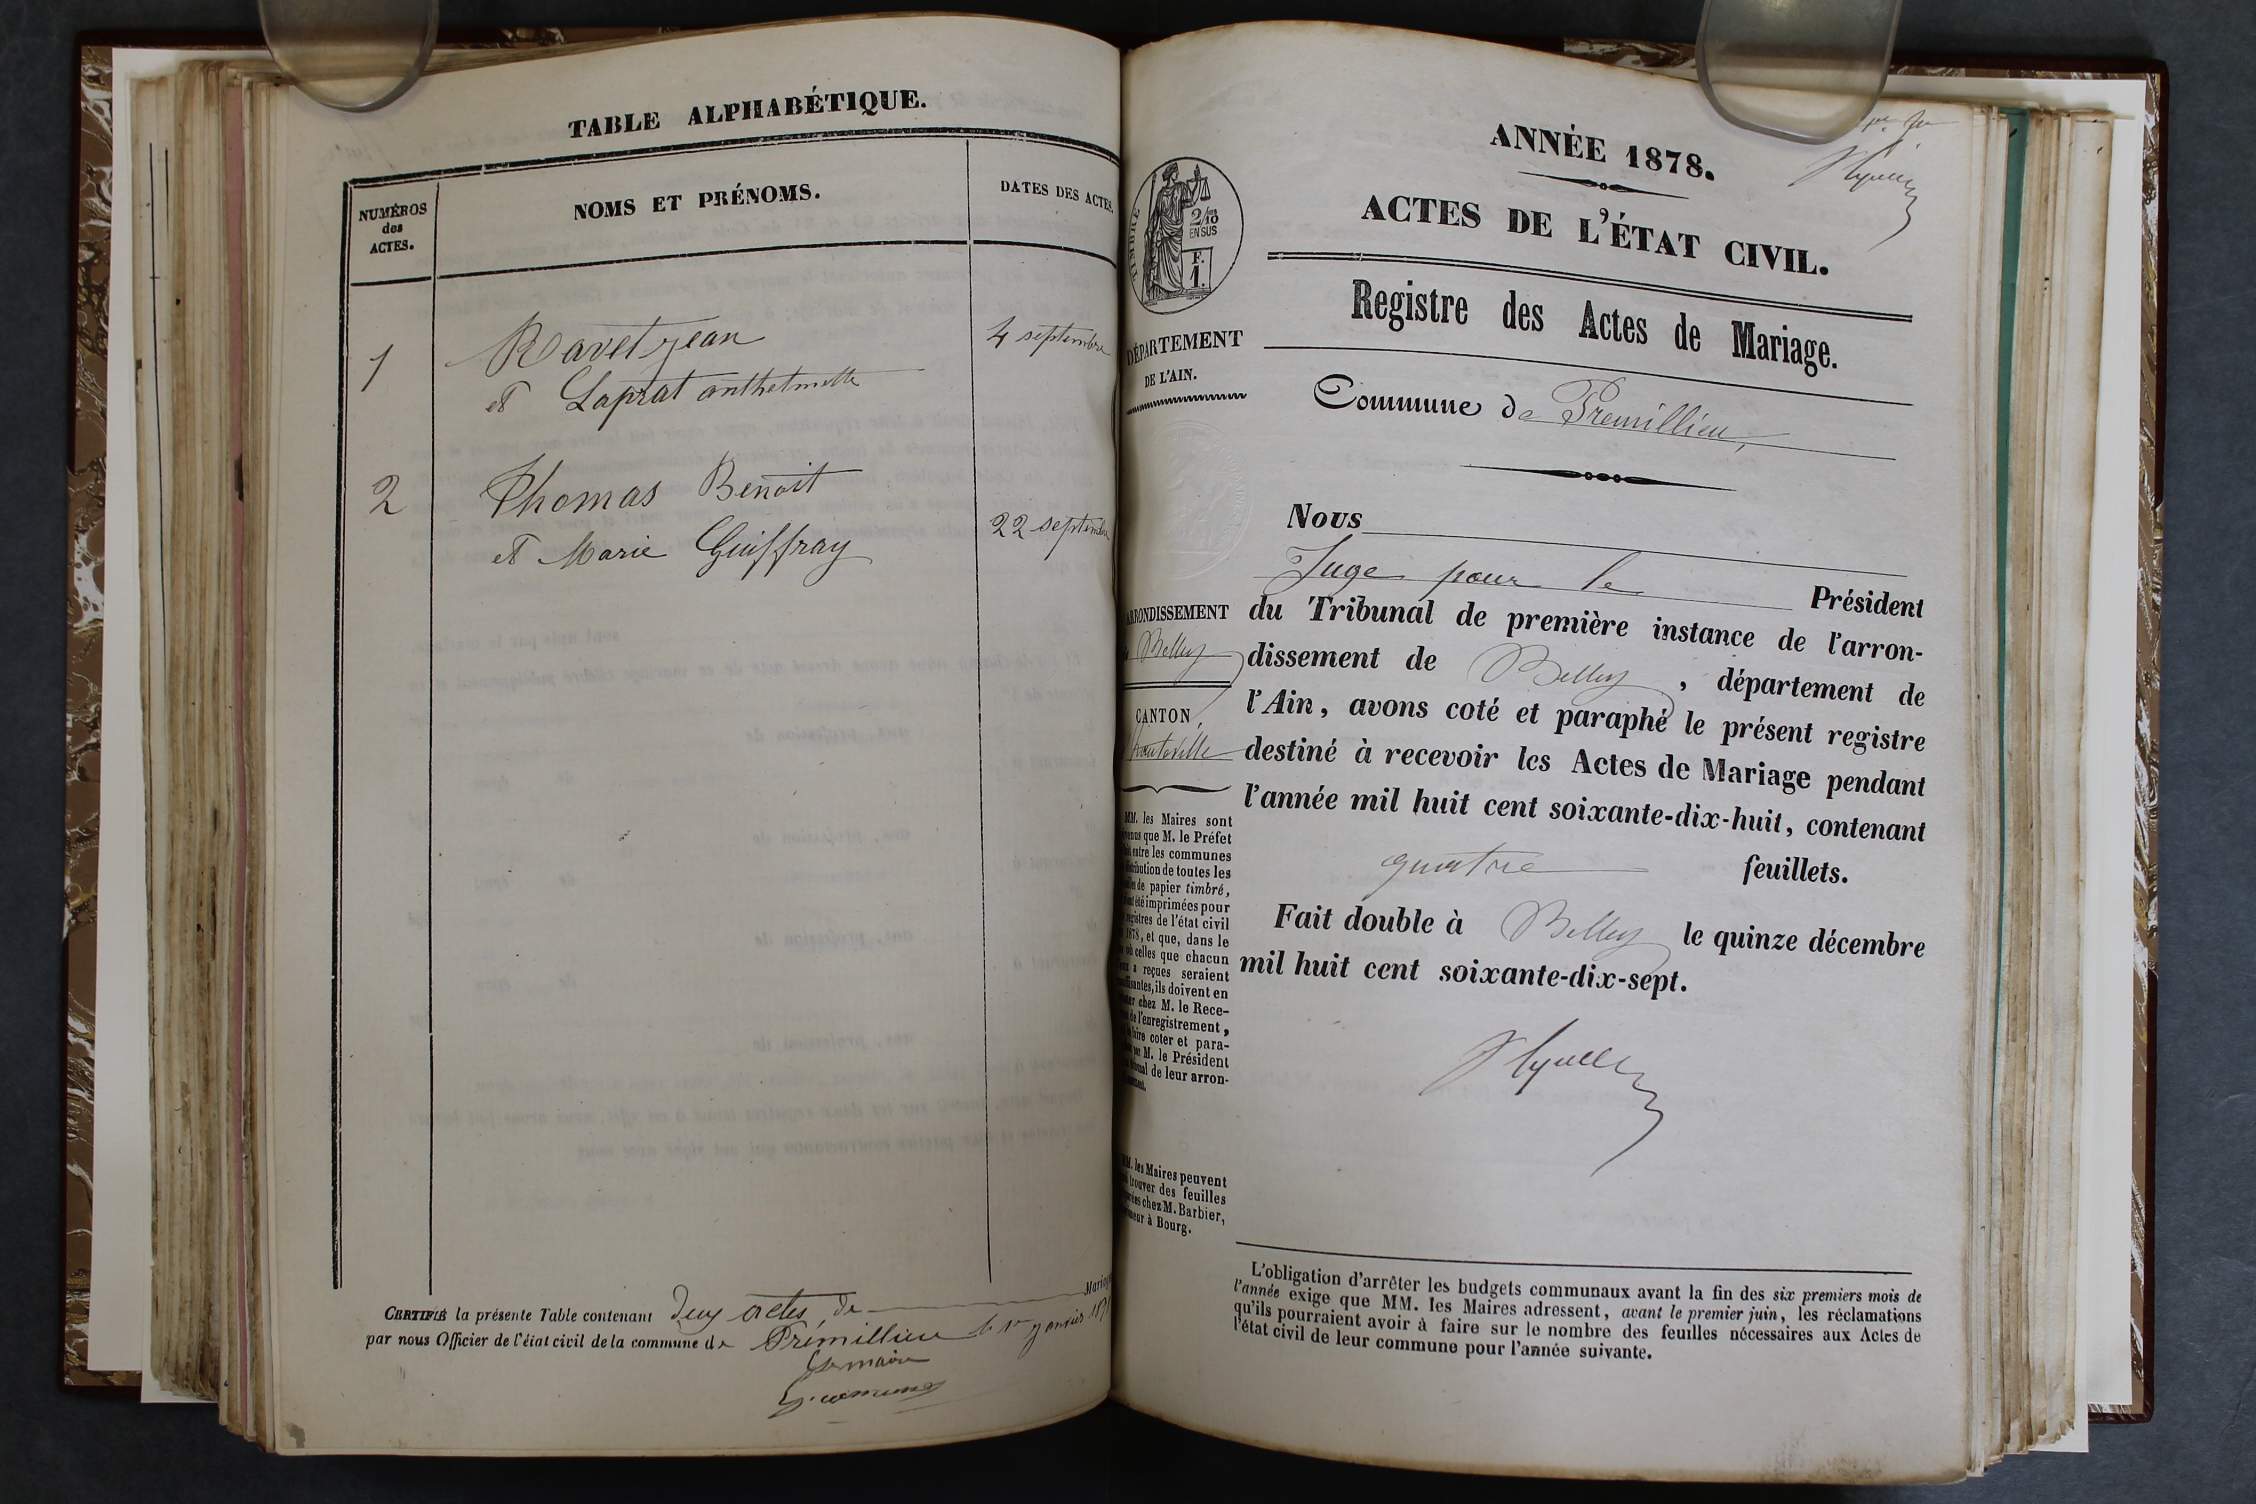 TABLE ALPHABÉTIQUE.
NUMÉROS
des
ACTES.
NOMS ET PRÉNOMS.
DATES DES ACTES.
1
Ravet jean
4 septembre
et Laprat anthelmette
2
Thomas Benoit
et Marie Guiffray
22 septembre
CERTIFIÉ la présente Table contenant deux actes de Mariage
par nous Officier de l'état civil de la commune de Prémillieu le 1er janvier
Le maire
ANNÉE 1878.
ACTES DE L'ÉTAT CIVIL.
Registre des Actes de Mariage.
Commune de Premillieu,
TIMBRE
2/10
EN SUS
F.
1.
DÉPARTEMENT
DE L'AIN.
ARRONDISSEMENT
Belley
CANTON
hauteville
MM. les Maires sont
que M. le Préfet
entre les communes
de toutes les
de papier timbré,
été imprimées pour
registres de l'état civil
1878, et que, dans le
où celles que chacun
a reçues seraient
ils doivent en
chez M. le Rece-
de l'enregistrement,
faire coter et para-
M. le Président
de leur arron-
MM. les Maires peuvent
trouver des feuilles
chez M. Barbier,
à Bourg.
Nous
Juge pour le Président
du Tribunal de première instance de l'arron-
dissement de Belley, département de
l'Ain, avons coté et paraphé le présent registre
destiné à recevoir les Actes de Mariage pendant
l'année mil huit cent soixante-dix-huit, contenant
quatre feuillets.
Fait double à Belley le quinze décembre
mil huit cent soixante-dix-sept.
L'obligation d'arrêter les budgets communaux avant la fin des six premiers mois de
l'année exige que MM. les Maires adressent, avant le premier juin, les réclamations
qu'ils pourraient avoir à faire sur le nombre des feuilles nécessaires aux Actes de
l'état civil de leur commune pour l'année suivante.